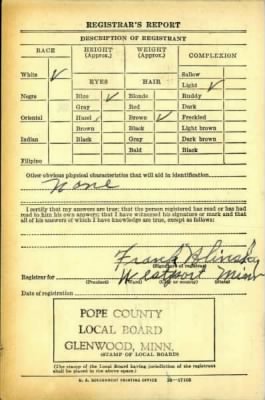 REGISTRAR'S REPORT
DESCRIPTION OF REGISTRANT
RACE HEIGHT (Approx.) WEIGHT (Approx.) COMPLEXION
White ✓ Sallow
EYES HAIR Light ✓
Negro Blue ✓ Blonde Ruddy
Gray Red Dark
Oriental Hazel Brown ✓ Freckled
Brown Black Light brown
Indian Black Gray Dark brown
Bald Black
Filipino
Other obvious physical characteristics that will aid in identification
None
I certify that my answers are true; that the person registered has read or has
had read to him his own answers; that I have witnessed his signature or mark and that
all of his answers of which I have knowledge are true, except as follows:
Frank
(Signature of registrar)
Registrar for Westport Minn
(Precinct) (Ward) (City or county) (State)
Date of registration
POPE COUNTY
LOCAL BOARD
GLENWOOD, MINN.
(STAMP OF LOCAL BOARD)
(The stamp of the Local Board having jurisdiction of the registrant
shall be placed in the above space.)
U. S. GOVERNMENT PRINTING OFFICE